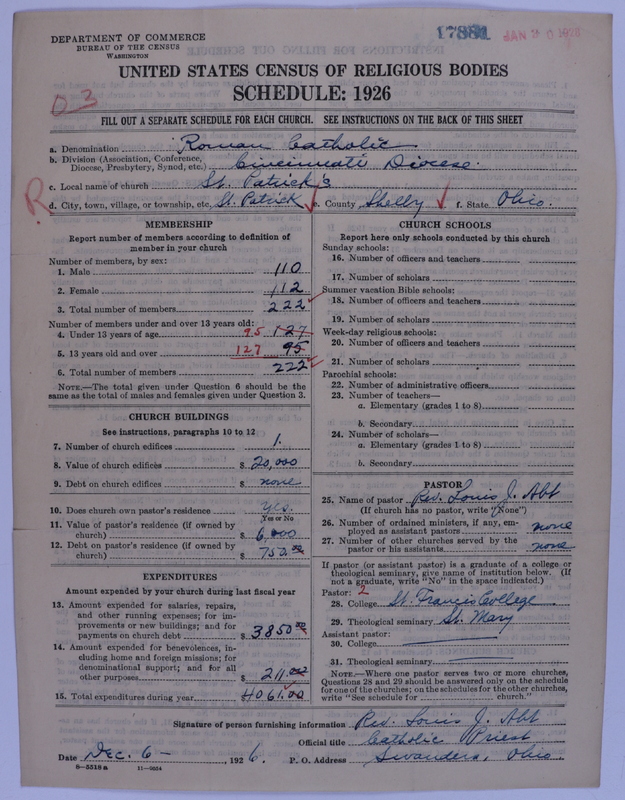 DEPARTMENT OF COMMERCE
BUREAU OF THE CENSUS
WASHINGTON
17881 JAN
UNITED STATES CENSUS OF RELIGIOUS BODIES
SCHEDULE: 1926
03
FILL OUT A SEPARATE SCHEDULE FOR EACH CHURCH. SEE INSTRUCTIONS ON THE BACK OF THIS SHEET
a. Denomination Roman Catholic
b. Division (Association, Conference, Diocese, Presbytery, Synod, etc.) Cincinnati Diocese.
c. Local name of church St. Patrick's
R
d. City, town, village, or township, etc. St. Patrick e. County Shelby f. State Ohio.
MEMBERSHIP
Report number of members according to definition of
member in your church
Number of members, by sex:
1. Male 110
2. Female 112
3. Total number of members 222
Number of members under and over 13 years old:
4. Under 13 years of age 95 127
5. 13 years old and over 127 95
6. Total number of members 222
NOTE.—The total given under Question 6 should be
same as the total of males and females given under Question 3.
CHURCH BUILDINGS
See instructions, paragraphs 10 to 12
7. Number of church edifices 1.
8. Value of church edifices $ 20,000
9. Debt on church edifices $ none
10. Does church own pastor's residence yes.
Yes or No
11. Value of pastor's residence (if owned by
church) $ 6,000
12. Debt on pastor's residence (if owned by
church) $ 750.00
EXPENDITURES
Amount expended by your church during last fiscal year
13. Amount expended for salaries, repairs,
and other running expenses; for im-
provements or new buildings; and for
payments on church debt $ 3850.00
14. Amount expended for benevolences, in-
cluding home and foreign missions; for
denominational support; and for all
other purposes $ 211.00
15. Total expenditures during year $ 4061.00
CHURCH SCHOOLS
Report here only schools conducted by this church
Sunday schools:
16. Number of officers and teachers
17. Number of scholars
Summer vacation Bible schools:
18. Number of officers and teachers
19. Number of scholars
Week-day religious schools:
20. Number of officers and teachers
21. Number of scholars
Parochial schools:
22. Number of administrative officers
23. Number of teachers—
a. Elementary (grades 1 to 8)
b. Secondary
24. Number of scholars—
a. Elementary (grades 1 to 8)
b. Secondary
PASTOR
25. Name of pastor Rev. Louis J. Abt
(If church has no pastor, write "None")
26. Number of ordained ministers, if any, em-
ployed as assistant pastors none
27. Number of other churches served by the
pastor or his assistants none
If pastor (or assistant pastor) is a graduate of a college or
theological seminary, give name of institution below. (If
not a graduate, write "No" in the space indicated.)
Pastor: 2
28. College St. Francis College
29. Theological seminary St. Mary
Assistant pastor:
30. College
31. Theological seminary
NOTE.—Where one pastor serves two or more churches,
Questions 28 and 29 should be answered only on the schedule
for one of the churches; on the schedules for the other churches,
write "See schedule for church."
Signature of person furnishing information Rev. Louis J. Abt
Official title Catholic Priest
Date Dec. 6 — , 1926. P. O. Address Swanders, Ohio.
8—5518a 11—9054